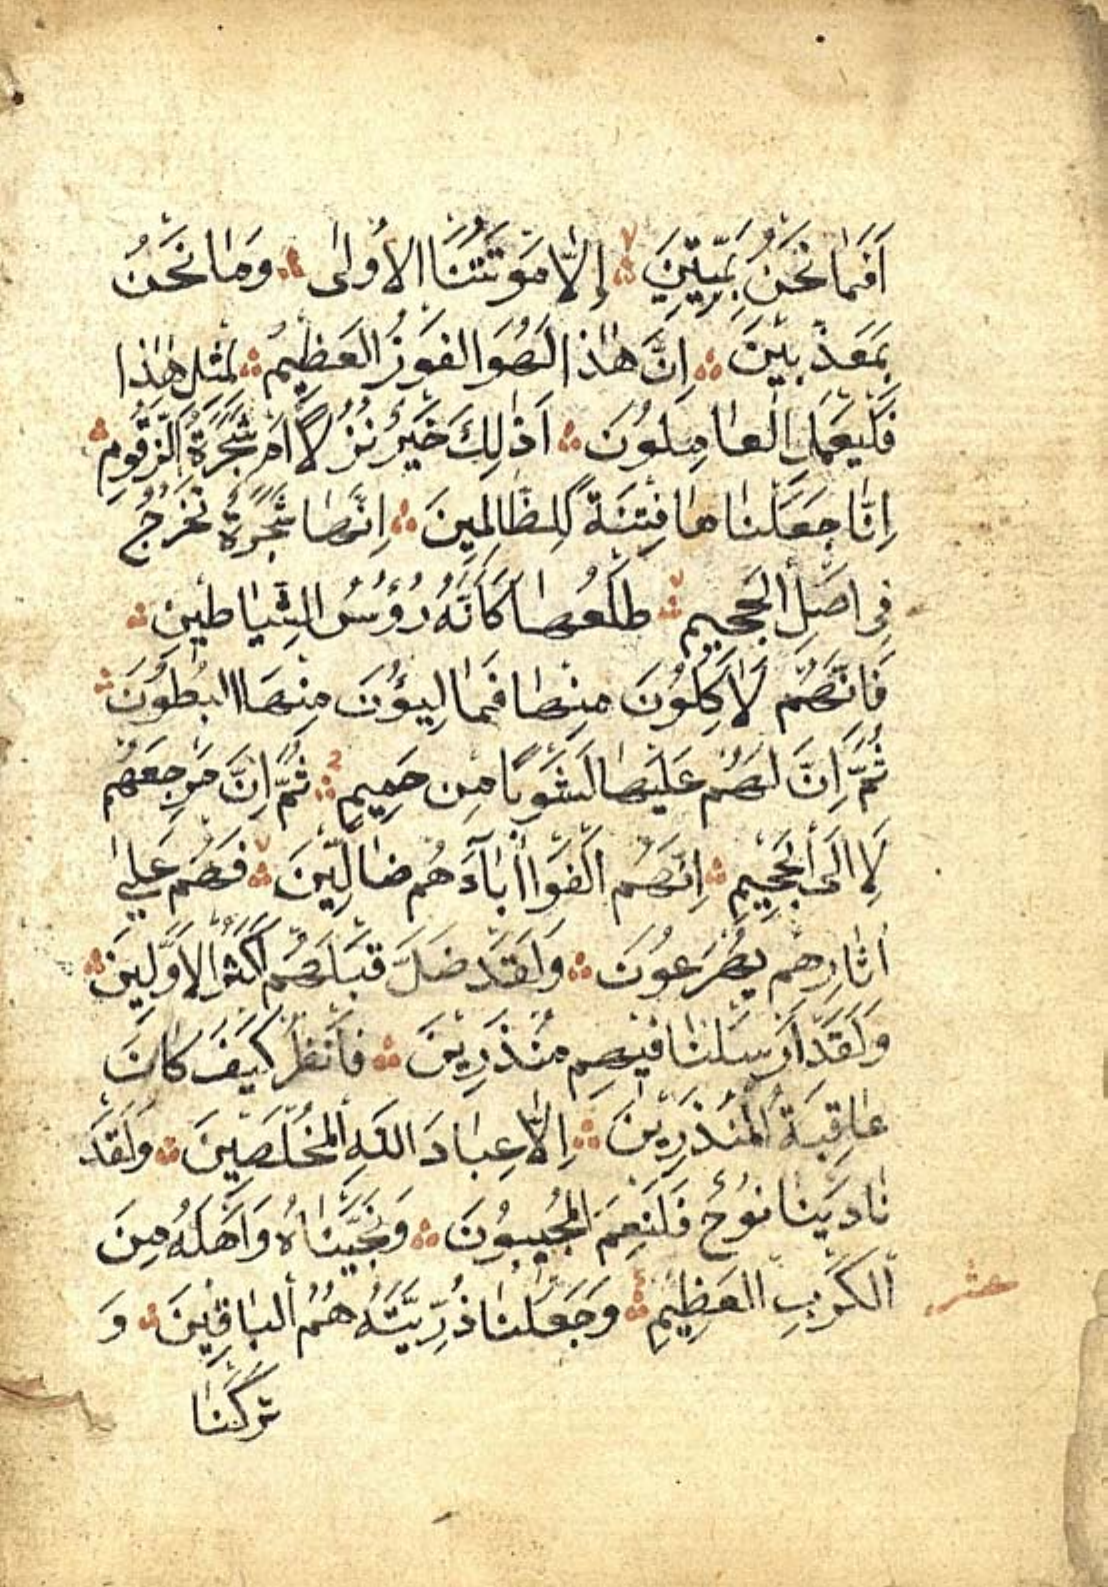 اَفَمَا نَحْنُ بِمَيِّتِينَ ۞ اِلَّا مَوْتَتَنَا الْاُولٰى ۞ وَمَا نَحْنُ
بِمُعَذَّبِينَ ۞ اِنَّ هٰذَا لَهُوَ الْفَوْزُ الْعَظِيمُ ۞ لِمِثْلِ هٰذَا
فَلْيَعْمَلِ الْعَامِلُونَ ۞ اَذٰلِكَ خَيْرٌ نُزُلًا اَمْ شَجَرَةُ الزَّقُّومِ ۞
اِنَّا جَعَلْنَاهَا فِتْنَةً لِلظَّالِمِينَ ۞ اِنَّهَا شَجَرَةٌ تَخْرُجُ
فِى اَصْلِ الْجَحِيمِ ۞ طَلْعُهَا كَاَنَّهُ رُؤُسُ الشَّيَاطِينِ ۞
فَاِنَّهُمْ لَاٰكِلُونَ مِنْهَا فَمَالِيؤُنَ مِنْهَا الْبُطُونَ ۞
ثُمَّ اِنَّ لَهُمْ عَلَيْهَا لَشَوْبًا مِنْ حَمِيمٍ ۞ ثُمَّ اِنَّ مَرْجِعَهُمْ
لَا اِلَى الْجَحِيمِ ۞ اِنَّهُمْ اَلْفَوْا اٰبَآءَهُمْ ضَالِّينَ ۞ فَهُمْ عَلٰى
اٰثَارِهِمْ يُهْرَعُونَ ۞ وَلَقَدْ ضَلَّ قَبْلَهُمْ اَكْثَرُ الْاَوَّلِينَ ۞
وَلَقَدْ اَرْسَلْنَا فِيهِمْ مُنْذِرِينَ ۞ فَانْظُرْ كَيْفَ كَانَ
عَاقِبَةُ الْمُنْذَرِينَ ۞ اِلَّا عِبَادَ اللّٰهِ الْمُخْلَصِينَ ۞ وَلَقَدْ
نَادٰينَا نُوحٌ فَلَنِعْمَ الْمُجِيبُونَ ۞ وَنَجَّيْنَاهُ وَاَهْلَهُ مِنَ
الْكَرْبِ الْعَظِيمِ ۞ وَجَعَلْنَا ذُرِّيَّتَهُ هُمُ الْبَاقِينَ ۞ وَ
تَرَكْنَا
عشر